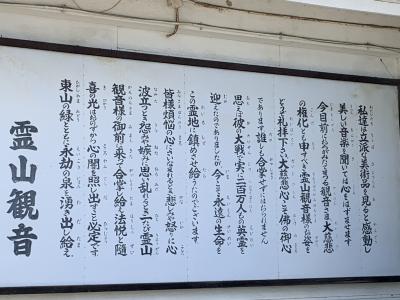 私達は立派な美術品を見ると感動し
美しい音楽を聞いては心をはずませます
今日前におがみたてまつる観音さま大慈悲
の権化とも申すべき霊山観音様のお姿を
どうぞ礼拝下さい大慈悲心こそ佛の御心
であります誰しも合掌せずにはおられません
思えば彼の大戦で実に二百万人もの英霊を
迎えたのでありましたが今こそ永遠の生命を
この霊地に鎮めさせ給うたのでございます
皆様煩悩の心にさいなまれるとき悲しみや怒りに心
波立つとき怨みや嫉みに思い乱れるとき一たび霊山
観音様の御前に来って合掌し給え法悦と随
喜の光は期せずから心の闇を照し出すこと必定です
東山の緑とともに永劫の泉を湧き出し給え
霊山観音